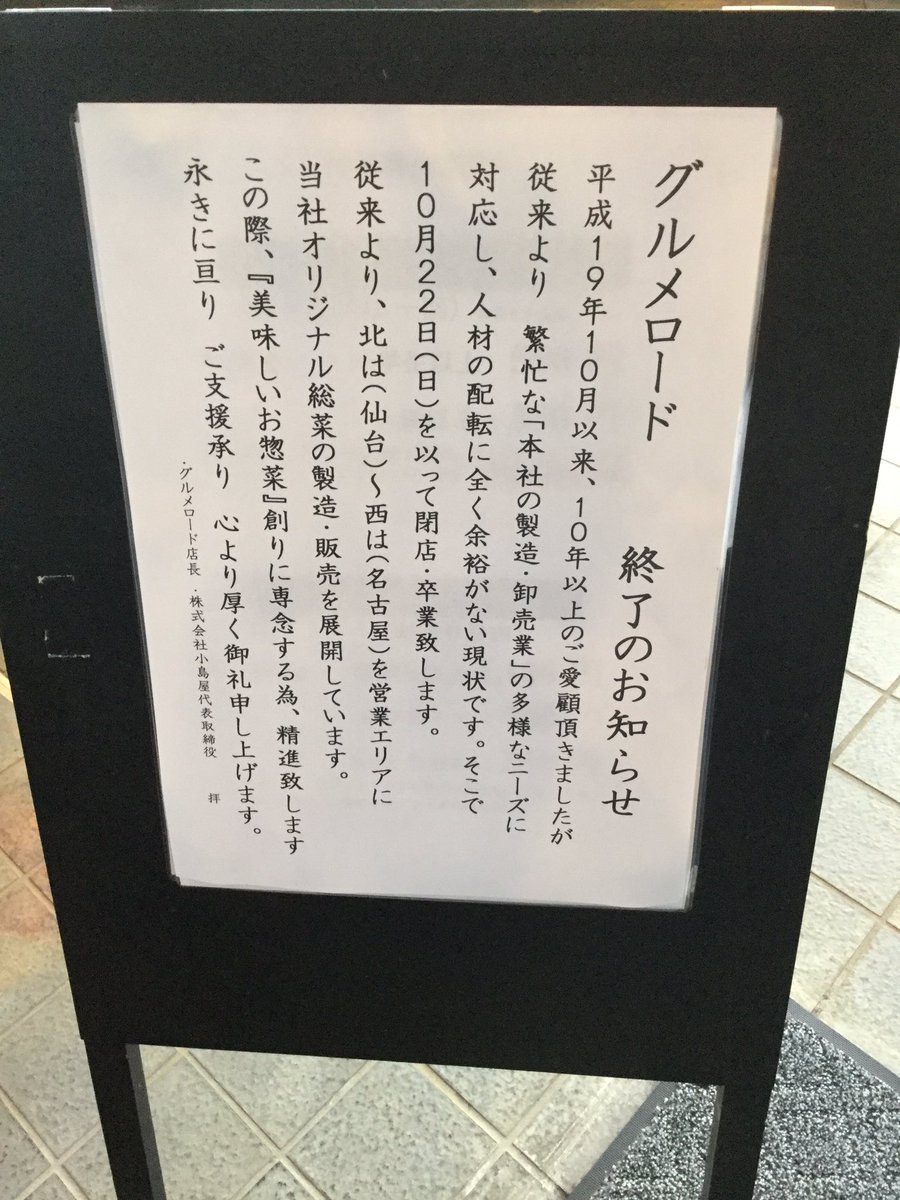 グルメロード　終了のお知らせ
平成１９年１０月以来、１０年以上のご愛顧頂きましたが
従来より　繁忙な「本社の製造・卸売業」の多様なニーズに
対応し、人材の配転に全く余裕がない現状です。そこで
１０月２２日（日）を以って閉店・卒業致します。
従来より、北は（仙台）～西は（名古屋）を営業エリアに
当社オリジナル総菜の製造・販売を展開しています。
この際、『美味しいお惣菜』創りに専念する為、精進致します
永きに亘り　ご支援承り　心より厚く御礼申し上げます。
・グルメロード店長　・株式会社小島屋代表取締役　拝